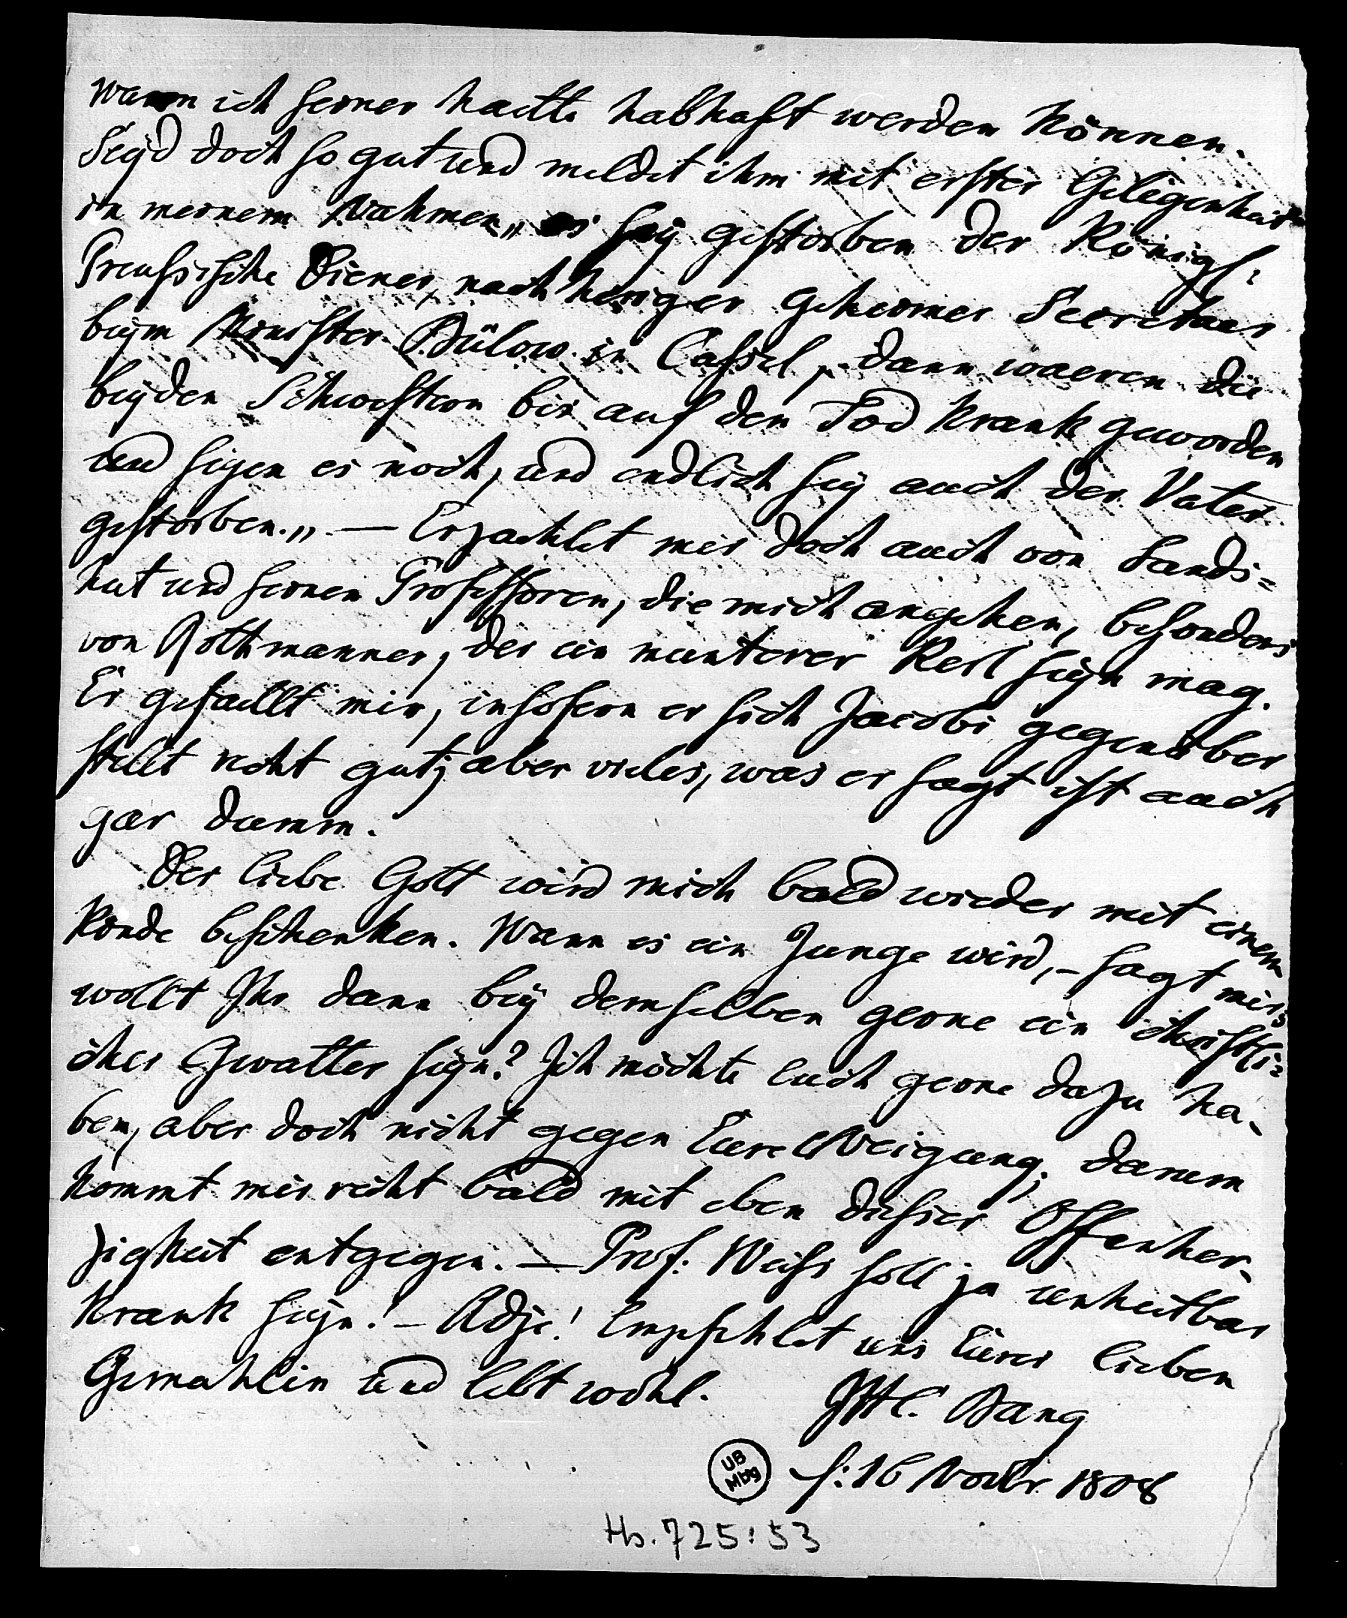 wann ich seiner haette habhaft werden können.
Seÿd doch so gut und meldet ihm mit erster Gelegenheit
in meinem Nahmen „ es seÿ gestorben der Königl:
Preussische Diener, nachheriger geheimer Secretaer
beÿm Minister Bülow in Cassel, dann waeren die
beÿden Schwestern bis auf den Tod krank geworden
und seÿen es noch, und endlich seÿ auch der Vater
gestorben.„ — Erzaehlet mir doch auch von Lands=
hut und seinen Professoren, die mich angehen, besonders
von Rottmanner, der ein munterer Kerl seÿn mag.
Er gefaellt mir, insofern er sich Jacobi gegenüber
stellt recht gut; aber vieles, was er sagt ist auch
gar dumm.
Der liebe Gott wird mich bald wieder mit einem
Kinde beschenken. Wann es ein Junge wird, – sagt mirs
wollt Ihr dann beÿ demselben gerne ein christli=
cher Gevatter seÿn? Ich möchte Euch gerne dazu ha-
ben, aber doch nicht gegen Eure Neigung; darum
kommt mir recht bald mit eben dieser Offenher-
zigkeit entgegen. — Prof: Weiss soll ja unheilbar
krank seÿn! – Adje! Empfehlet uns Eürer lieben
Gemahlin und lebt wohl.
Bang
f: 16 Novbr. 1808
UB
Mbg
Hs. 725:53